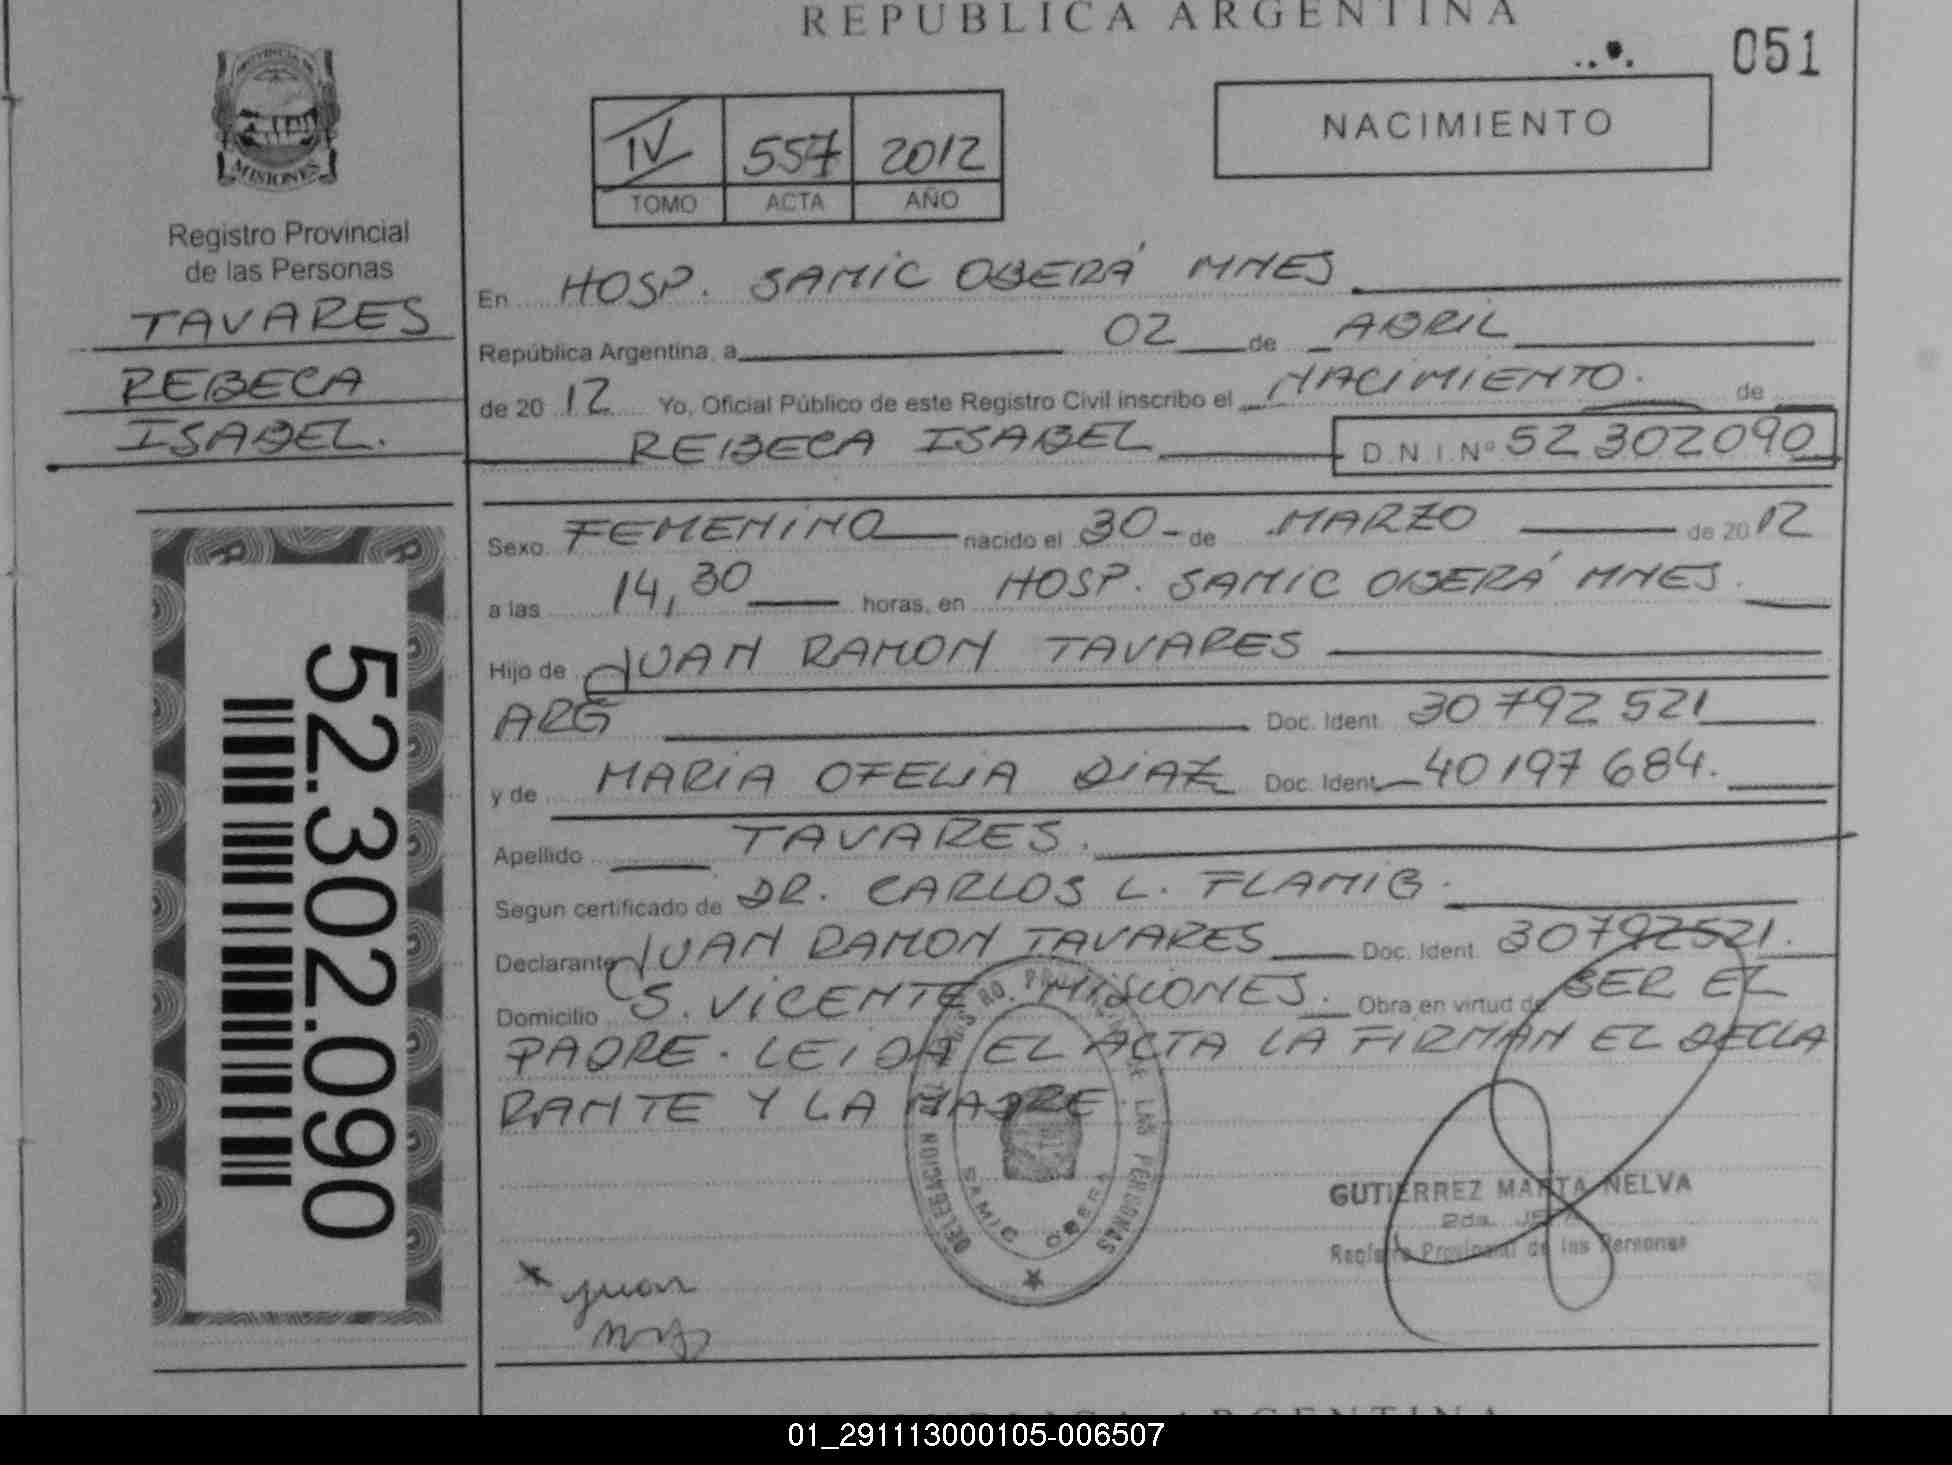 REPUBLICA ARGENTINA
051
PROVINCIA DE
MISIONES
Registro Provincial
de las Personas
TAVARES
REBECA
ISABEL.
52.302.090
IV 557 2012
TOMO ACTA AÑO
NACIMIENTO
En HOSP. SAMIC OBERÁ MNES
República Argentina, a 02 de ABRIL
de 20 12 Yo, Oficial Público de este Registro Civil inscribo el NACIMIENTO. de
REBECA ISABEL D.N.I.Nº 52 302090
Sexo FEMENINO nacido el 30 - de MARZO de 20 12
a las 14,30 horas, en HOSP. SAMIC OBERÁ MNES.
Hijo de JUAN RAMON TAVARES
ARG Doc. Ident. 30 792 521
y de MARIA OFELIA DIAZ Doc. Ident. 40197 684.
Apellido TAVARES.
Segun certificado de DR. CARLOS L. FLAMIG.
Declarante JUAN RAMON TAVARES Doc. Ident. 30792521.
Domicilio S. VICENTE MISIONES. Obra en virtud de SER EL
PADRE. LEIDA EL ACTA LA FIRMAN EL DECLA
RANTE Y LA MADRE.
DELEGACION DE LAS PERSONAS
SAMIC OBERA
GUTIERREZ MARTA NELVA
2da. JEFA
Registro Provincial de las Personas
juan
01_291113000105-006507